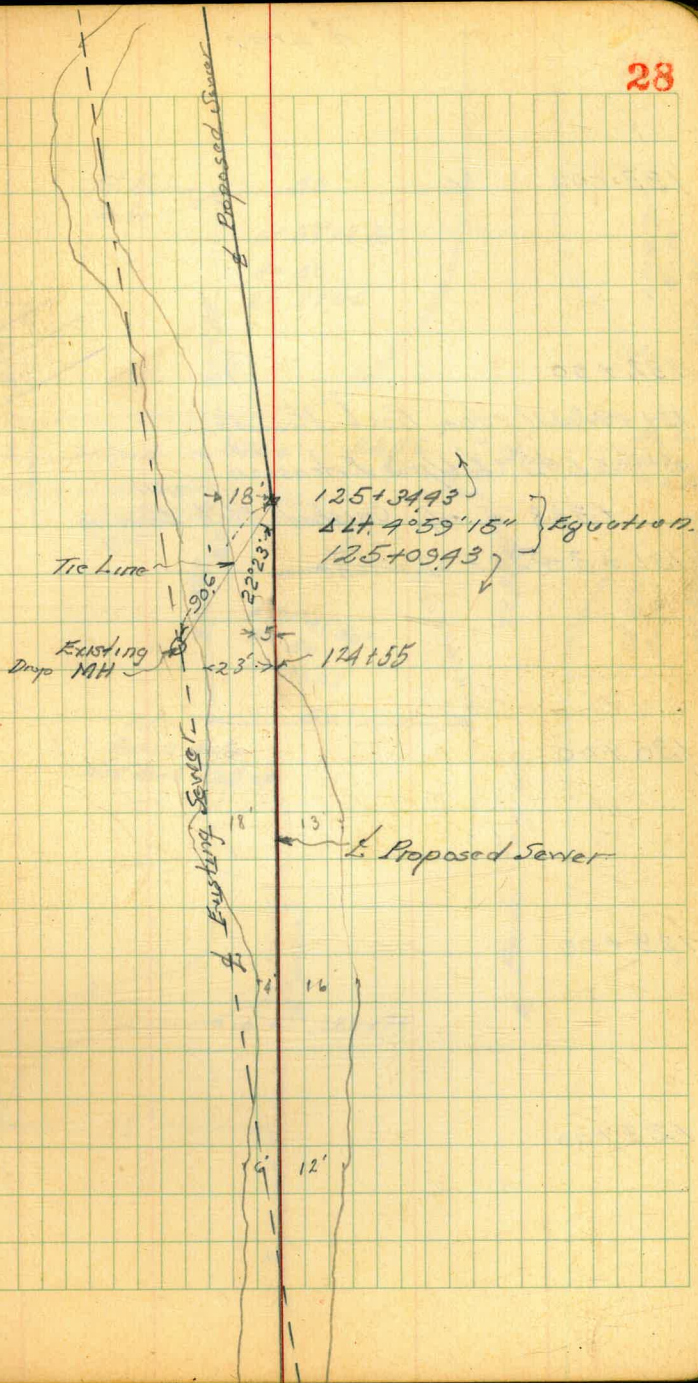 28
℄ Proposed Sewer
18'
125+34.43
Δ Lt. 4°59'15"
Equation.
125+09.43
22°23'
Tie Line
90.6'
5
Existing
Drop MH
23'
124+55
℄ Existing Sewer
18'
13'
℄ Proposed Sewer
4'
16
6'
12'